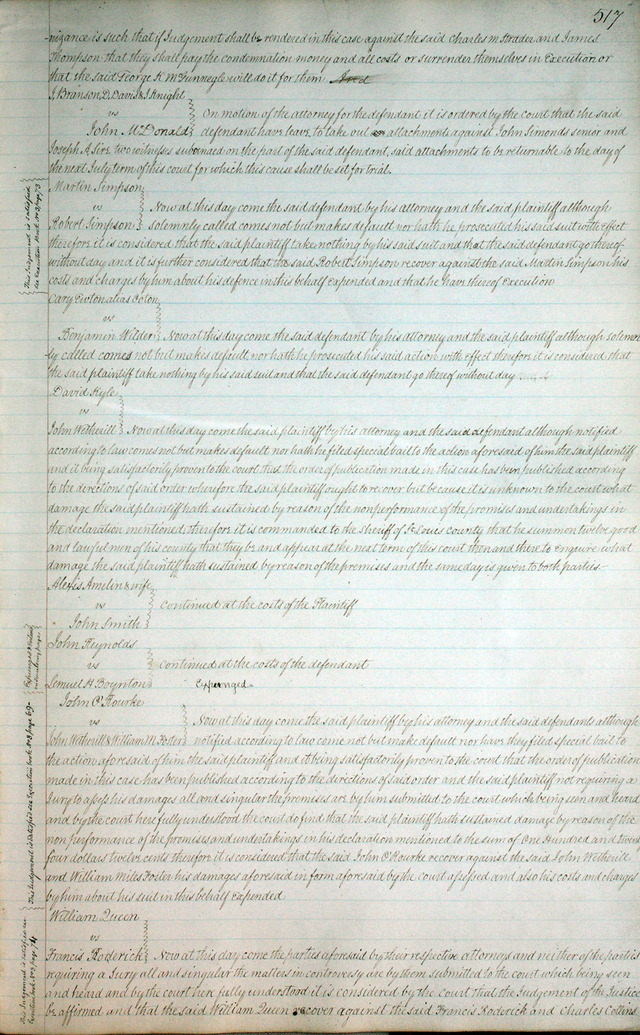 517
nizance is such that if Judgement shall be rendered in this case against the said Charles M Strader and James
Thompson that they shall pay the condemnation money and all costs or surrender themselves in Execution or
that the said George K McGunnegle will do it for them
J. Branson, D. Davis & J Knight
vs
John McDonald
On motion of the attorney for the defendant it is ordered by the court that the said
defendant have leave to take out an attachments against John Simonds senior and
Joseph A Sire two witnesses subpoenaed on the part of the said defendant, said attachments to be returnable to the day of
the next July term of this court for which this cause shall be set for trial.
Martin Simpson
vs
Robert Simpson
Now at this day come the said defendant by his attorney and the said plaintiff although
solemnly called comes not but makes default nor hath he prosecuted his said suit with effect
therefore it is considered that the said plaintiff take nothing by his said suit and that the said defendant go thereof
without day and it is further considered that the said Robert Simpson recover against the said Martin Simpson his
costs and charges by him about his defence in this behalf expended and that he have thereof Execution
This Judgement is satisfied
see Execution Book No 3 page 73
Cary alias Colon
vs
Benjamin Wilder Now at this day come the said defendant by his attorney and the said plaintiff although solemn
ly called comes not but makes default nor hath he prosecuted his said action with effect therefore it is considered that
the said plaintiff take nothing by his said suit and that the said defendant go thereof without day
David Kyle
vs
John Witherill Now at this day come the said plaintiff by his attorney and the said defendant although notified
according to law comes not but makes default nor hath he filed special bail to the action aforesaid of him the said plaintiff
and it being satisfactorily proven to the court that the order of publication made in this case has been published according
to the directions of said order wherefore the said plaintiff ought to recover but because it is unknown to the court what
damage the said plaintiff hath sustained by reason of the nonperformance of the promises and undertakings in
the declaration mentioned, therefore it is commanded to the sheriff of St Louis county that he summon twelve good
and lawful men of his county that they be and appear at the next term of this court then and there to enquire what
damage the said plaintiff hath sustained by reason of the premises and the same day is given to both parties.
Alexis Amelin & wife
vs
John Smith
Continued at the costs of the Plaintiff
John Reynolds
vs
Semuel H Boynton
Continued at the costs of the defendant
Expunged
John O'Rourke
vs
John Witherill & William M Foster
Now at this day come the said plaintiff by his attorney and the said defendants although
notified according to law come not but make default nor have they filed special bail to
the action aforesaid of him the said plaintiff and it being satisfactorily proven to the court that the order of publication
made in this case has been published according to the directions of said order and the said plaintiff not requiring a
Jury to assess his damages all and singular the premises are by him submitted to the court which being seen and heard
and by the court here fully understood the court do find that the said plaintiff hath sustained damage by reason of the
non performance of the promises and undertakings in his declaration mentioned to the sum of One Hundred and twenty
four dollars twelve cents therefore it is considered that the said John O'Rourke recover against the said John Witherill
and William Miles Foster his damages aforesaid in form aforesaid by the court assessed and also his costs and charges
by him about his suit in this behalf expended
This Judgement is satisfied see Execution book No 3 page 69
William Queen
vs
Francis Roderick Now at this day come the parties aforesaid by their respective attorney and neither of the parties
requiring a Jury all and singular the matters in controversy are by them submitted to the court which being seen
and heard and by the court here fully understood it is considered by the court that the Judgement of the Justice
be affirmed and that the said William Queen recover against the said Francis Roderick and Charles Collins
This Judgement is satisfied see
Execution book No 3 page 74